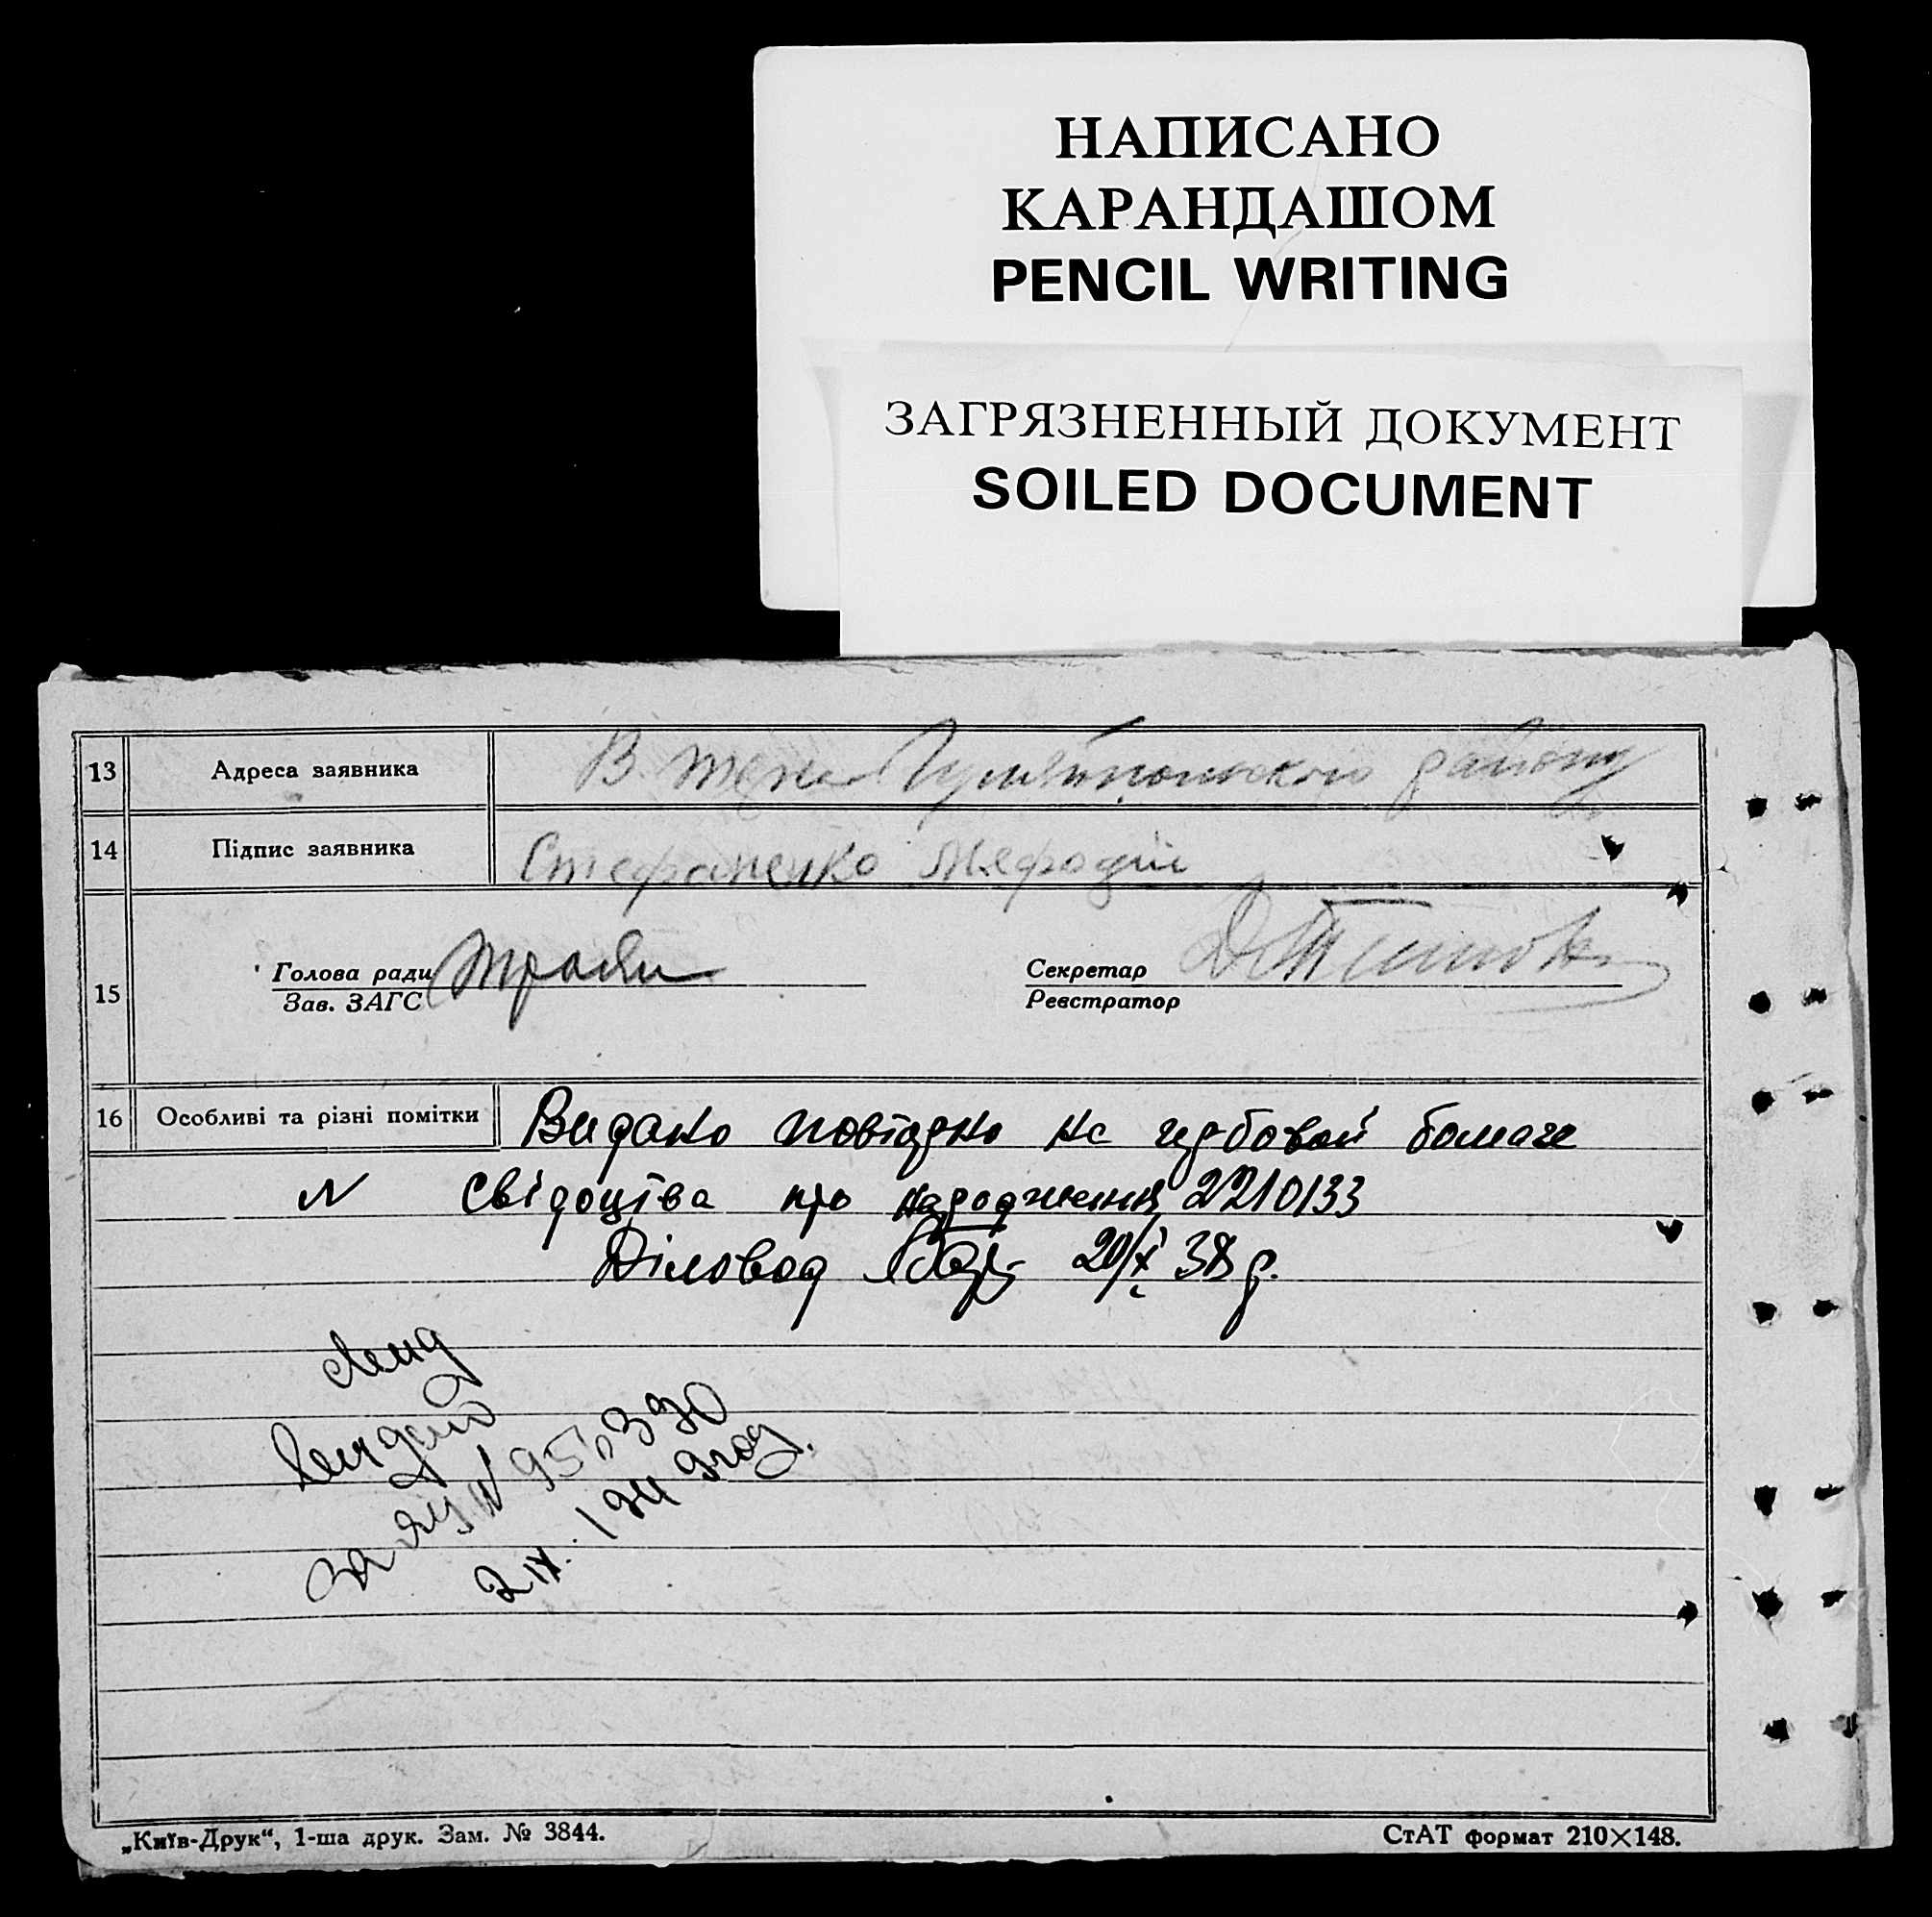 НАПИСАНО
КАРАНДАШОМ
PENCIL WRITING
ЗАГРЯЗНЕННЫЙ ДОКУМЕНТ
SOILED DOCUMENT
13 Адреса заявника В. Гуляйпольского району
14 Підпис заявника Стефаненко Мефодий
15 Голова ради Секретар
Зав. ЗАГС Реєстратор
16 Особливі та різні помітки Видано повідно на бомаге
N Свідоцтва про народження 2210133
Діловод 20/X 38 р.
выдано
за N 95
2 IX. 194 год.
„Київ-Друк“, 1-ша друк. Зам. № 3844. СтАТ формат 210×148.